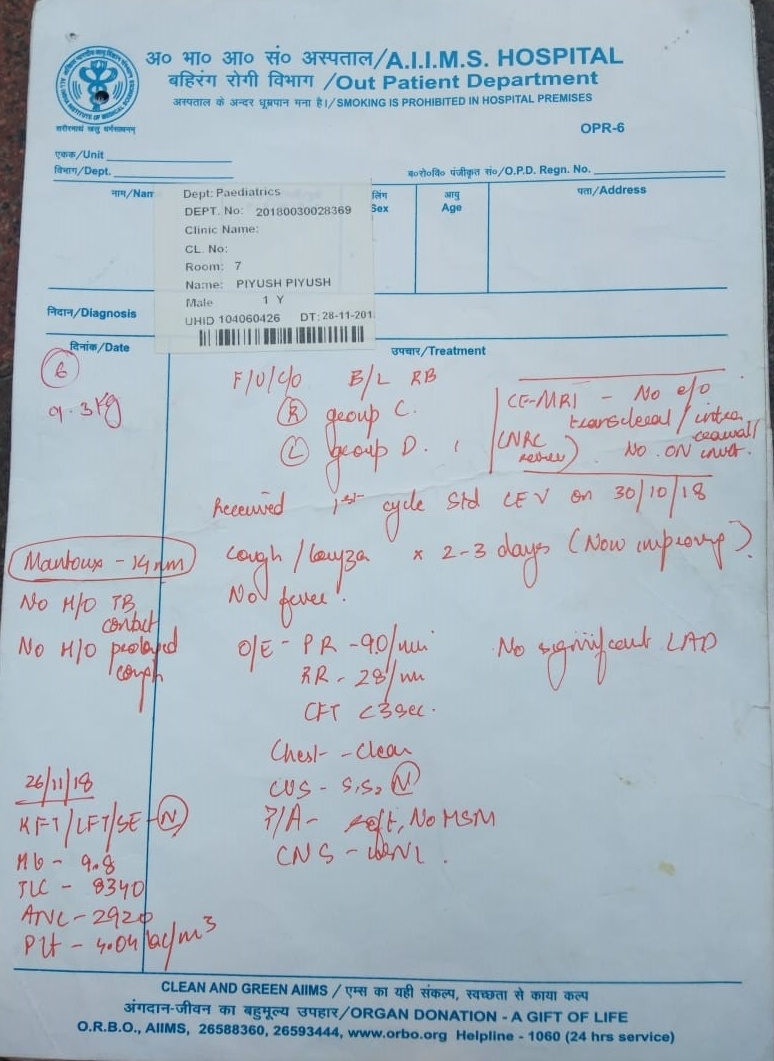 अ० भा० आ० सं० अस्पताल/A.I.I.M.S. HOSPITAL
बहिरंग रोगी विभाग /Out Patient Department
अस्पताल के अन्दर धूम्रपान मना है।/SMOKING IS PROHIBITED IN HOSPITAL PREMISES
शरीरमाद्यं खलु धर्मसाधनम्
OPR-6
एकक/Unit
विभाग/Dept.
ब०रो०वि० पंजीकृत सं०/O.P.D. Regn. No.
नाम/Nam
लिंग
Sex
आयु
Age
पता/Address
Dept: Paediatrics
DEPT. No: 20180030028369
Clinic Name:
CL. No:
Room: 7
Name: PIYUSH PIYUSH
Male 1 Y
UHID 104060426 DT: 28-11-201
निदान/Diagnosis
दिनांक/Date
उपचार/Treatment
9.3Kg
F/U/C/O B/L RB
(R) group C.
(L) group D.
CE-MRI - No e/o
transcleral / intra
No ON
Received 1st cycle Std CEV on 30/10/18
Mantoux - 14 mm
No H/O TB
contact
No H/O prolonged
cough
Cough / Coryza x 2-3 days (Now improving).
No fever.
O/E - PR - 90/min
No significant LAD
RR - 28/min
CFT <3sec.
Chest - Clear
CVS - S1S2 (N)
P/A - soft, No HSM
CNS - WNL.
26/11/18
KFT/LFT/SE - (N)
Hb - 9.8
TLC - 8340
ANC - 2920
Plt - 4.04 lac/m3
CLEAN AND GREEN AIIMS / एम्स का यही संकल्प, स्वच्छता से काया कल्प
अंगदान-जीवन का बहुमूल्य उपहार/ORGAN DONATION - A GIFT OF LIFE
O.R.B.O., AIIMS, 26588360, 26593444, www.orbo.org Helpline - 1060 (24 hrs service)